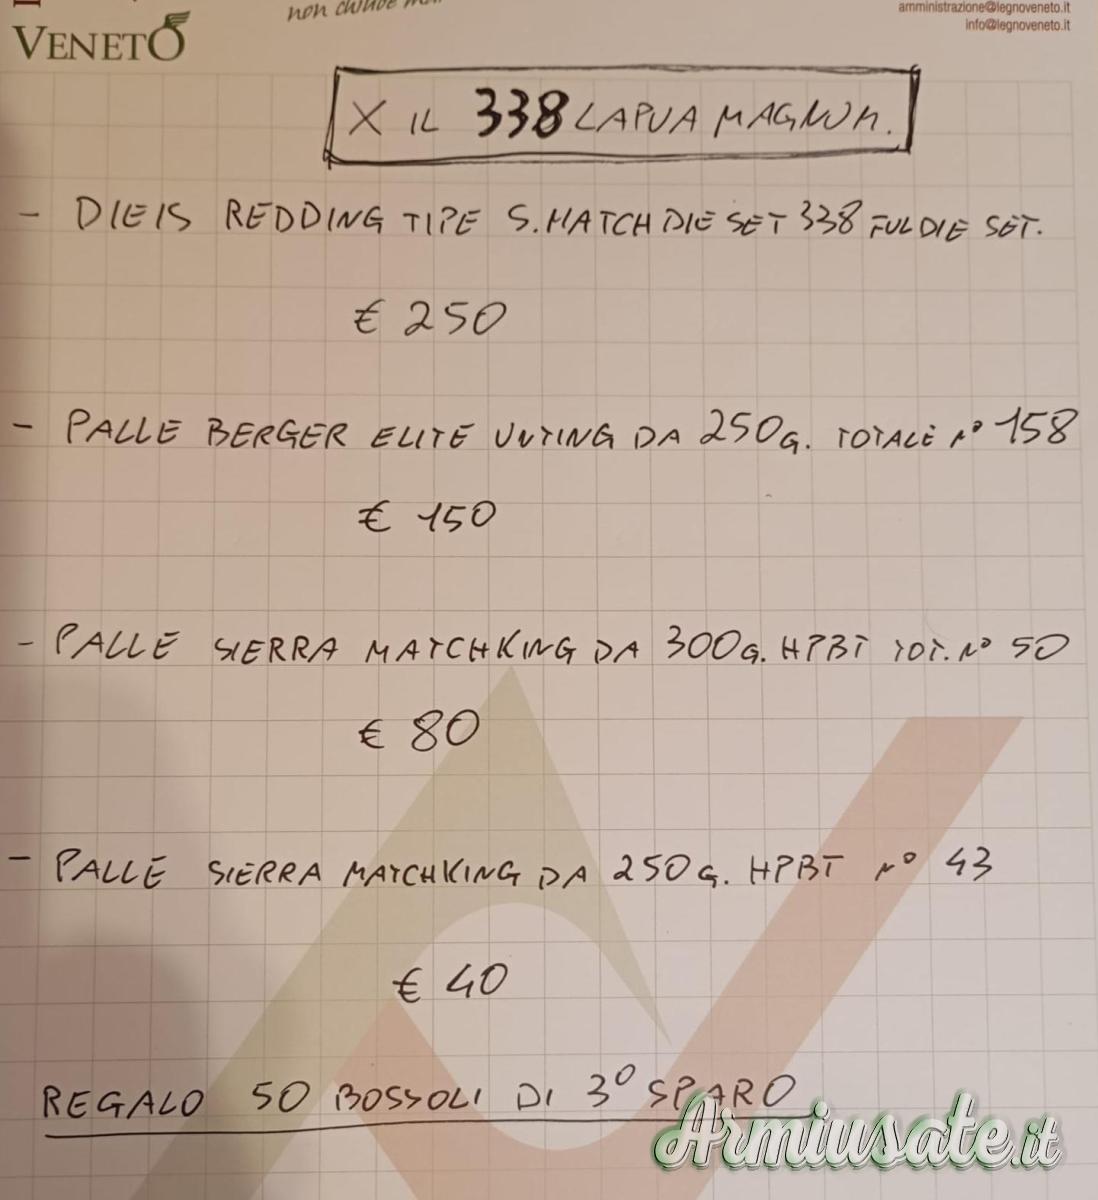 amministrazione@legnoveneto.it
info@legnoveneto.it
non chiude
VENETO
X IL 338 LAPUA MAGNUM.
- DIEIS REDDING TIPE S. MATCH DIE SET 338 FUL DIE SET.
€ 250
- PALLE BERGER ELITE UNTING DA 250G. TOTALE N° 158
€ 150
- PALLE SIERRA MATCHKING DA 300G. HPBT TOT. N° 50
€ 80
- PALLE SIERRA MATCHKING DA 250G. HPBT N° 43
€ 40
REGALO 50 BOSSOLI DI 3° SPARO
Armiusate.it